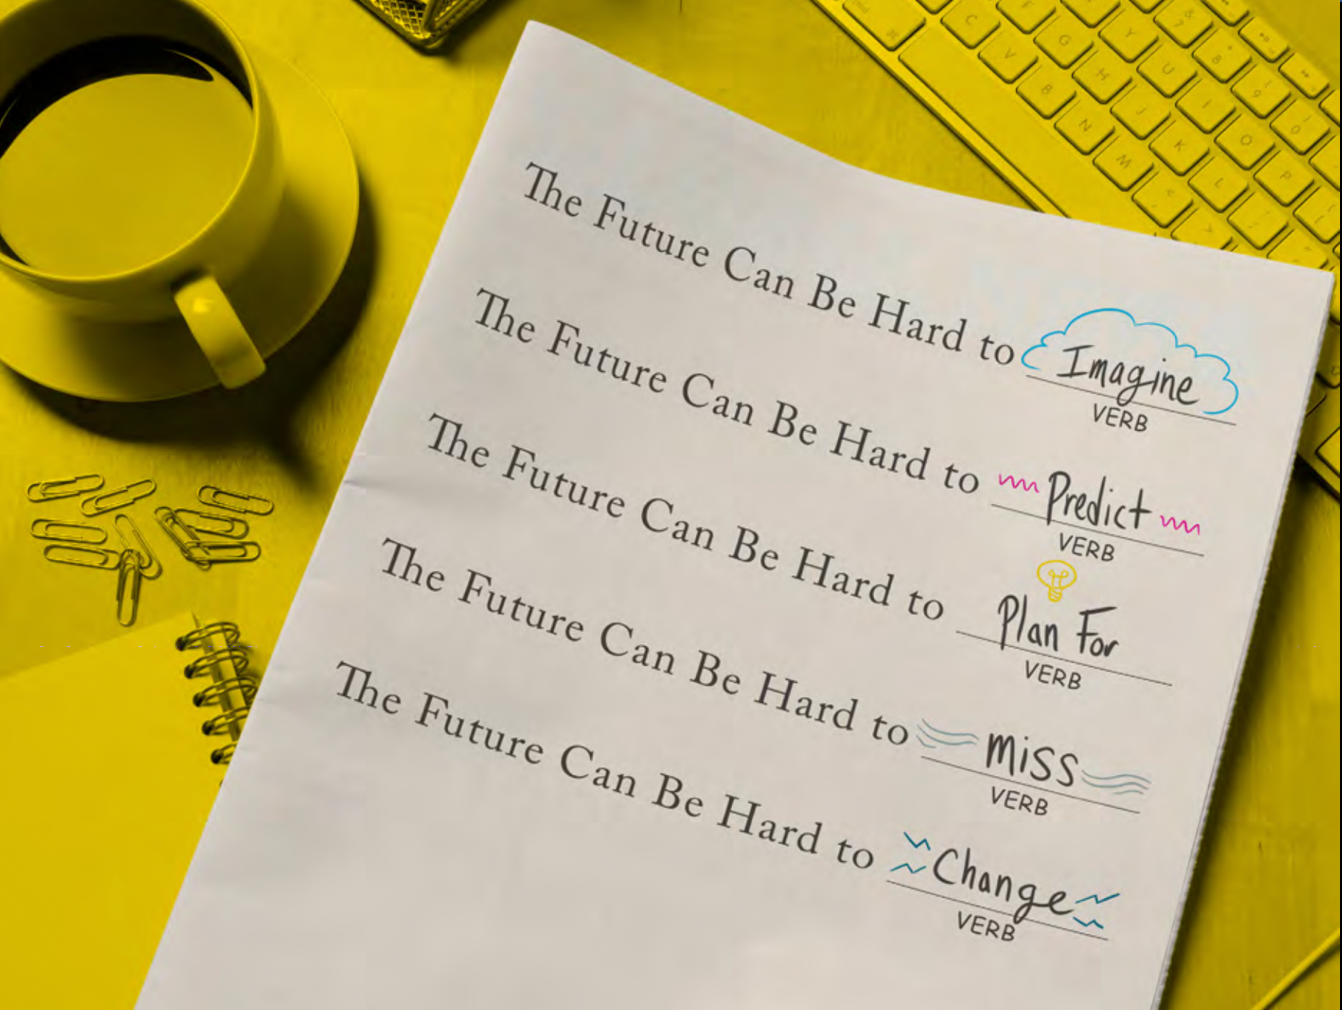 The Future Can Be Hard to Imagine
VERB
The Future Can Be Hard to Predict
VERB
The Future Can Be Hard to Plan For
VERB
The Future Can Be Hard to Miss
VERB
The Future Can Be Hard to Change
VERB